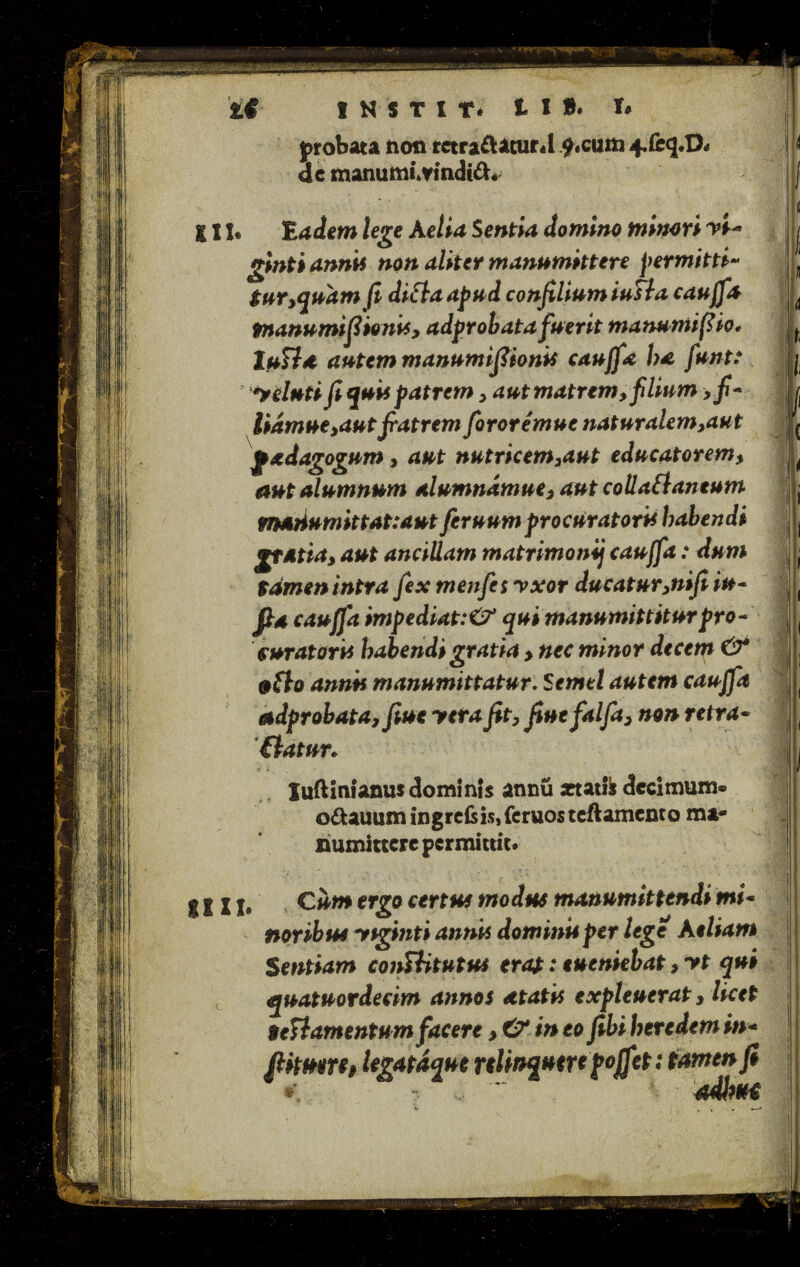 26 INSTIT. LIB. I.
probata non retractatur.l 9.cum 4.seq.D.
de manumi.vindict.
III. Eadem lege Aelia Sentia domino minori vi-
ginti annis non aliter manumittere permitti-
tur,quàm si dicta apud consilium iusta caussa
manumissionis, adprobata fuerit manumissio.
Iustæ autem manumissionis caussæ hæ sunt:
veluti si quis patrem, aut matrem, filium, fi-
liámue,aut fratrem sororémue naturalem,aut
pædagogum, aut nutricem,aut educatorem,
aut alumnum alumnámue, aut collactaneum
manumittat:aut seruum procuratoris habendi
gratia, aut ancillam matrimonij caussa: dum
tamen intra sex menses vxor ducatur,nisi iu-
sta caussa impediat:& qui manumittitur pro-
curatoris habendi gratia, nec minor decem &
octo annis manumittatur. Semel autem caussa
adprobata, siue vera sit, siue falsa, non retra-
ctatur.
Iustinianus dominis annū ætatis decimum-
octauum ingressis, seruos testamento ma-
numittere permittit.
IIII. Cùm ergo certus modus manumittendi mi-
noribus viginti annis dominis per legē Aeliam
Sentiam constitutus erat: eueniebat, vt qui
quatuordecim annos ætatis expleuerat, licet
testamentum facere, & in eo sibi heredem in-
stituere, legatáque relinquere posset: tamen si
adhuc